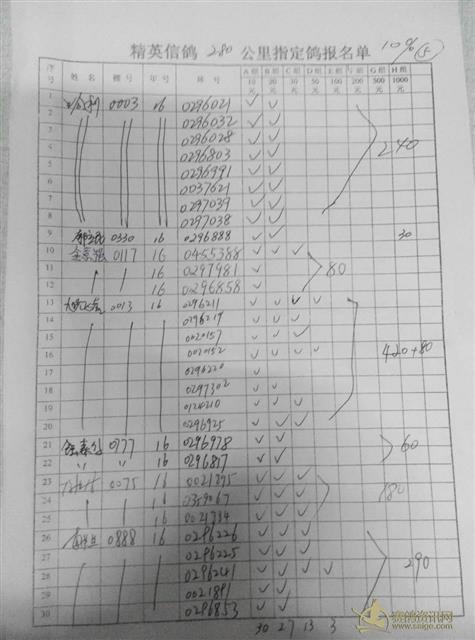 精英信鸽 280 公里指定鸽报名单 10% ⑤
序号 姓名 棚号 年号 环号 A组 10元 B组 20元 C组 30元 D组 50元 E组 100元 F组 200元 G组 500元 H组 1000元
1 0003 16 0296021 ✓ ✓
2 0296032 ✓ ✓
3 0296028 ✓ ✓
4 0296803 ✓ ✓
5 0296991 ✓ ✓ 240
6 0037621 ✓ ✓
7 0297039 ✓ ✓
8 0297038 ✓ ✓
9 0330 16 0296888 ✓ ✓ 30
10 0117 16 0455388 ✓ ✓ ✓
11 16 0297981 ✓ 80
12 16 0296858 ✓
13 0013 16 0296211 ✓ ✓ ✓ ✓
14 0296219 ✓ ✓ ✓
15 0020157 ✓ ✓ ✓
16 0020152 ✓ ✓ ✓ ✓ 420+80
17 0296220 ✓
18 0297302 ✓ ✓
19 0124210 ✓ ✓ ✓
20 0296925 ✓ ✓ ✓
21 0177 16 0296978 ✓ ✓ 60
22 〃 〃 16 0296817 ✓ ✓
23 0075 16 0021375 ✓ ✓ ✓
24 0359067 ✓ ✓ ✓ 180
25 16 0021384 ✓ ✓ ✓
26 0888 16 0296226 ✓ ✓ ✓
27 0296225 ✓ ✓ ✓
28 0296241 ✓ ✓ ✓ ✓ 290
29 0021891 ✓ ✓
30 0296853 ✓ ✓
30 27 13 3
赛鸽资讯网
www.saige.com